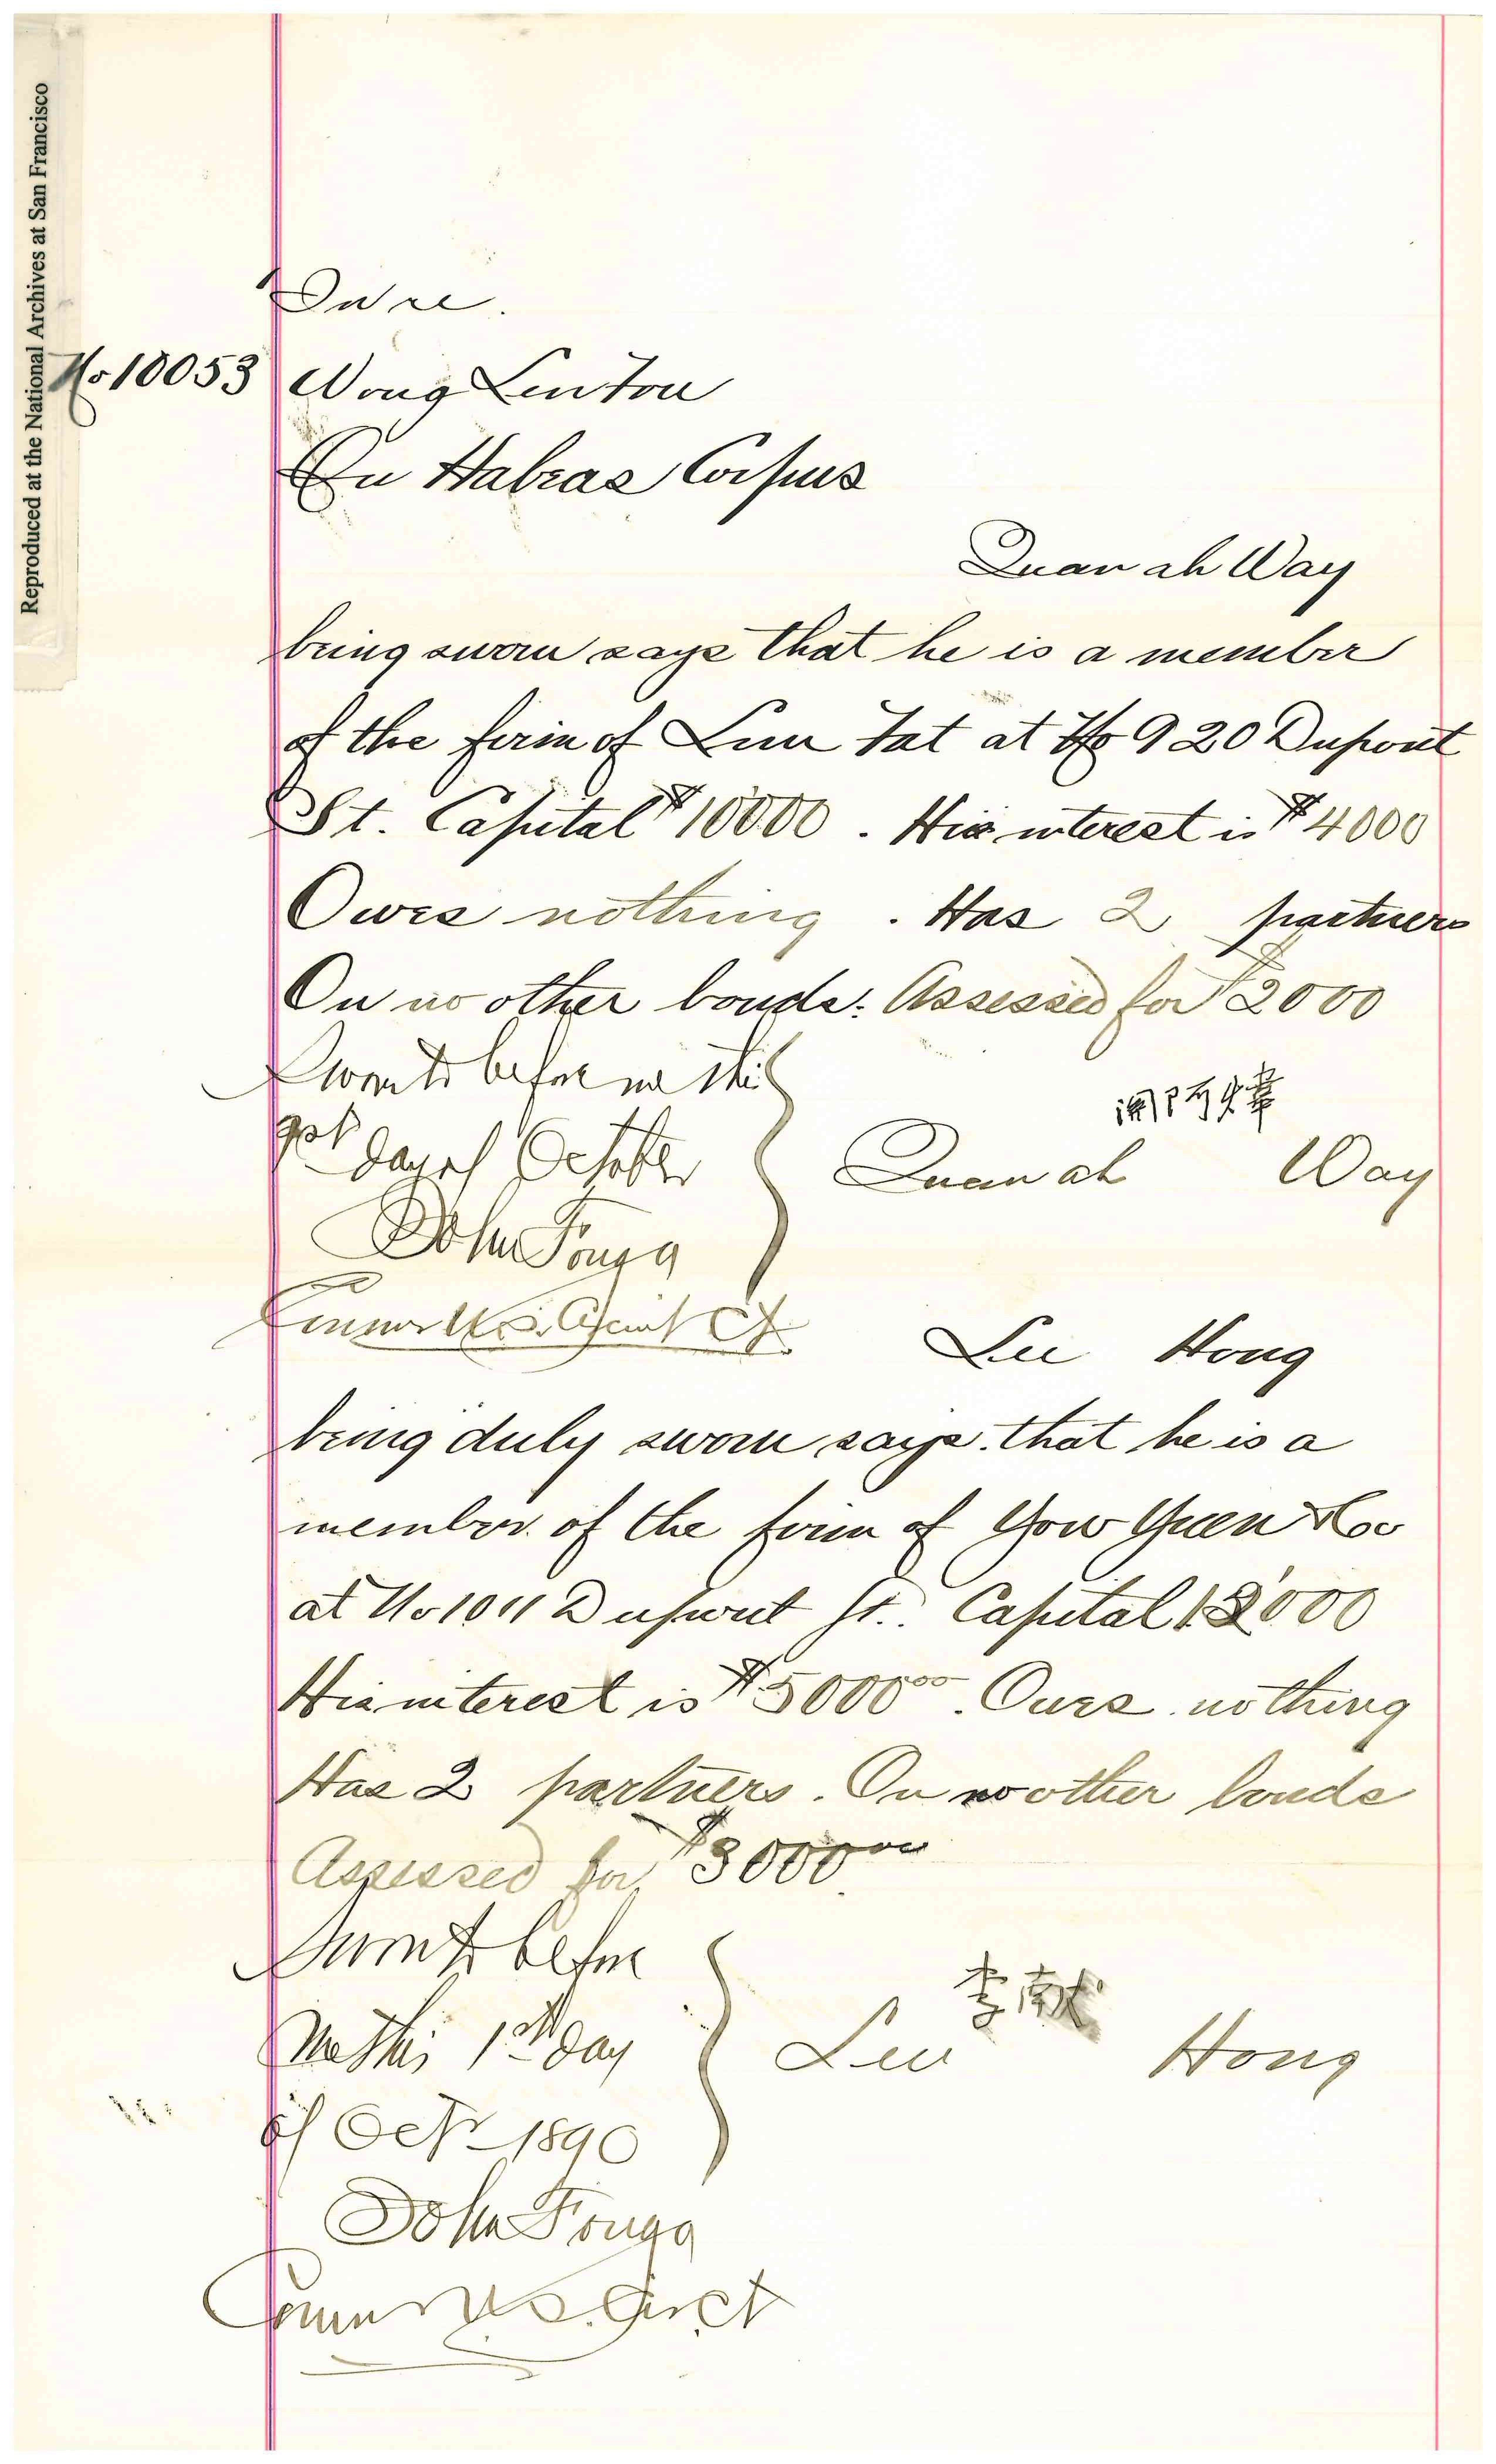 Reproduced at the National Archives at San Francisco
In re.
No 10053 Wong Lin Tou
On Habeas Corpus
Quan ah Way
being sworn says that he is a member
of the firm of Lun Tat at No 920 Dupont
St. Capital $10000. His interest is $4000
Owes nothing. Has 2 partners
On no other bonds. Assessed for $2000
Sworn to before me this
day of October
Quan ah Way
Lee Hong
being duly sworn says that he is a
member of the firm of Yow Yuen
at No 1011 Dupont St. Capital
His interest is $5000⁰⁰. Owes nothing
Has 2 partners. On no other bonds
Assessed for $3000⁰⁰
Sworn to before
me this 1st day
李
Lee Hong
of Oct 1890
John Fouga
Commr U.S. Circt Ct